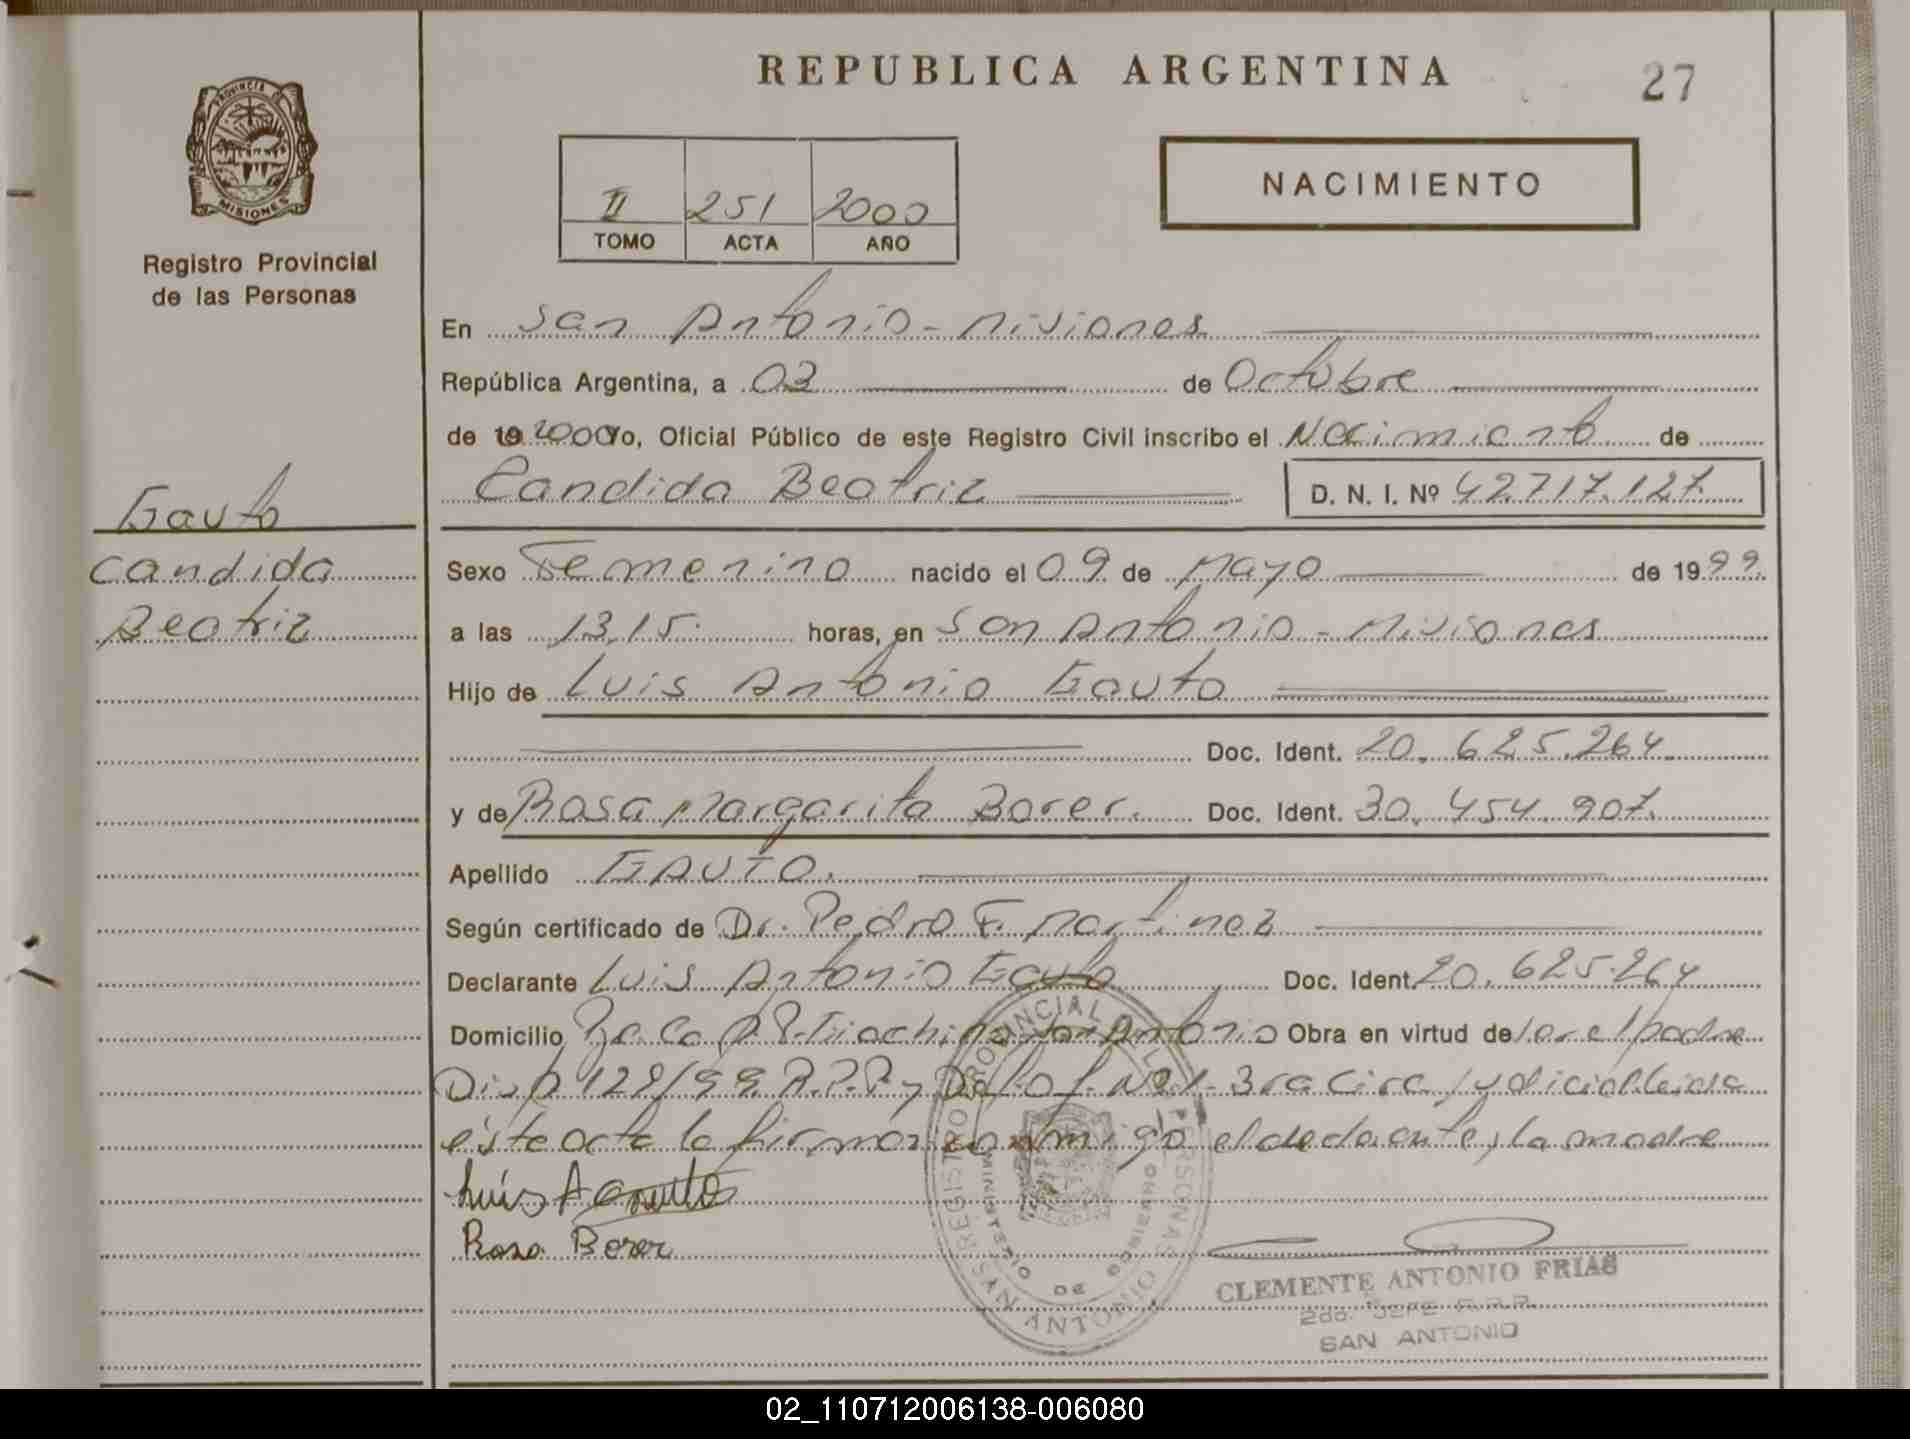 REPUBLICA ARGENTINA
27
PROVINCIA DE
MISIONES
Registro Provincial
de las Personas
II 251 2000
TOMO ACTA AÑO
NACIMIENTO
En San Antonio - Misiones
República Argentina, a 03 de Octubre
de 19 2000 Yo, Oficial Público de este Registro Civil inscribo el Nacimiento de
Candida Beatriz D. N. I. Nº 42.717.127.
Gauto
Candida
Beatriz
Sexo Femenino nacido el 09 de Mayo de 1999.
a las 13,15. horas, en San Antonio - Misiones
Hijo de Luis Antonio Gauto
Doc. Ident. 20.625.264.
y de Rosa Margarita Borer. Doc. Ident. 30.454.907.
Apellido GAUTO.
Según certificado de Dr. Pedro F. Martinez
Declarante Luis Antonio Gauto Doc. Ident. 20.625.264
Domicilio San Antonio Obra en virtud de ser el padre
Disp 128/99. R.P.P. y Nº 1- 3ra Circ. Judicial Leida
éste acta la firman conmigo el declarante y la madre
Luis A Gauto
Rosa Borer
REGISTRO PROVINCIAL DE LAS PERSONAS
MINISTERIO DE GOBIERNO
SAN ANTONIO
CLEMENTE ANTONIO FRIAS
2do. JEFE R.P.P.
SAN ANTONIO
02_110712006138-006080